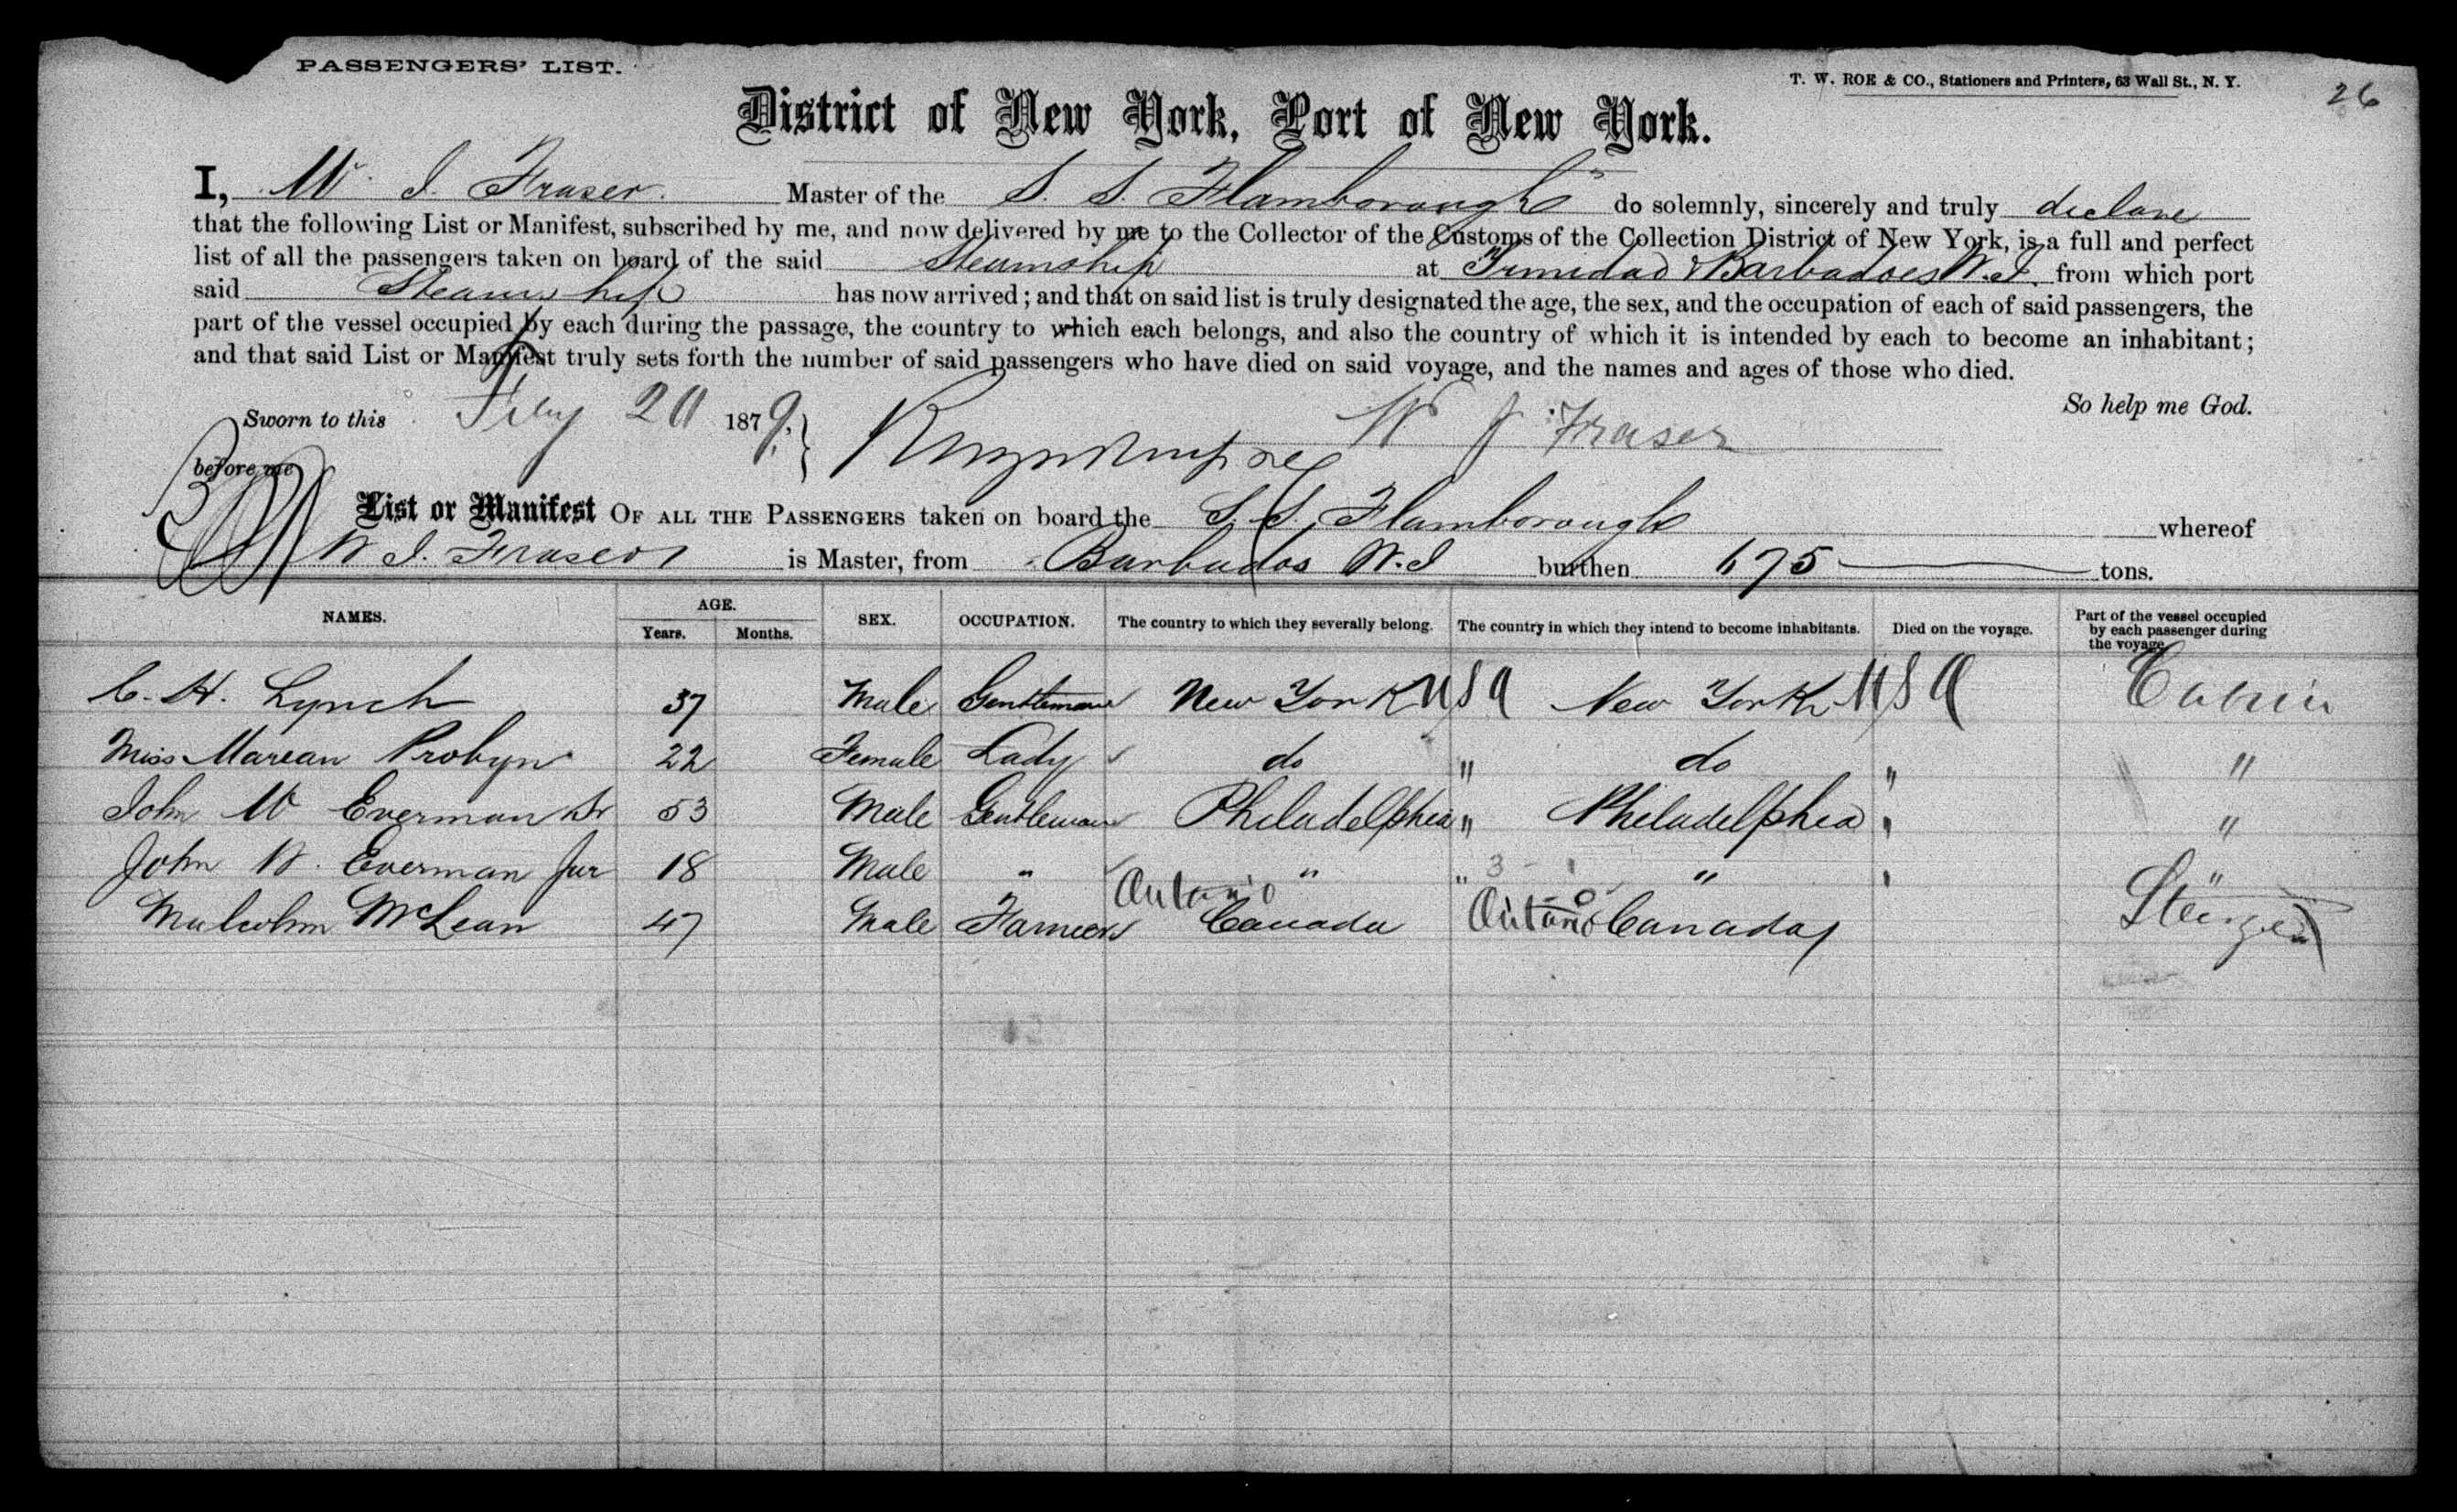 PASSENGERS' LIST.
T. W. ROE & CO., Stationers and Printers, 63 Wall St., N. Y.
26
District of New York, Port of New York.
I, W. J. Fraser Master of the S. S. Flamborough" do solemnly, sincerely and truly declare
that the following List or Manifest, subscribed by me, and now delivered by me to the Collector of the Customs of the Collection District of New York, is a full and perfect
list of all the passengers taken on board of the said Steamship at Trinidad & Barbadoes W. I. from which port
said Steamship has now arrived; and that on said list is truly designated the age, the sex, and the occupation of each of said passengers, the
part of the vessel occupied by each during the passage, the country to which each belongs, and also the country of which it is intended by each to become an inhabitant;
and that said List or Manifest truly sets forth the number of said passengers who have died on said voyage, and the names and ages of those who died.
So help me God.
Sworn to this Feby 20 1879. W J Fraser
before me
List or Manifest OF ALL THE PASSENGERS taken on board the S. S. Flamborough whereof
W J. Fraser is Master, from Barbados W. I burthen 675 tons.
NAMES. AGE. Years. Months. SEX. OCCUPATION. The country to which they severally belong. The country in which they intend to become inhabitants. Died on the voyage. Part of the vessel occupied by each passenger during the voyage
C. H. Lynch 37 Male Gentleman New York USA New York USA Cabin
Miss Marean Probyn 22 Female Lady do " do " "
John W Everman Sr 53 Male Gentleman Philadelphia " Philadelphia " "
John W. Everman Jur 18 Male " " " 3 " " "
Malcolm McLean 47 Male Farmer Ontario Canada Ontario Canada Steerage